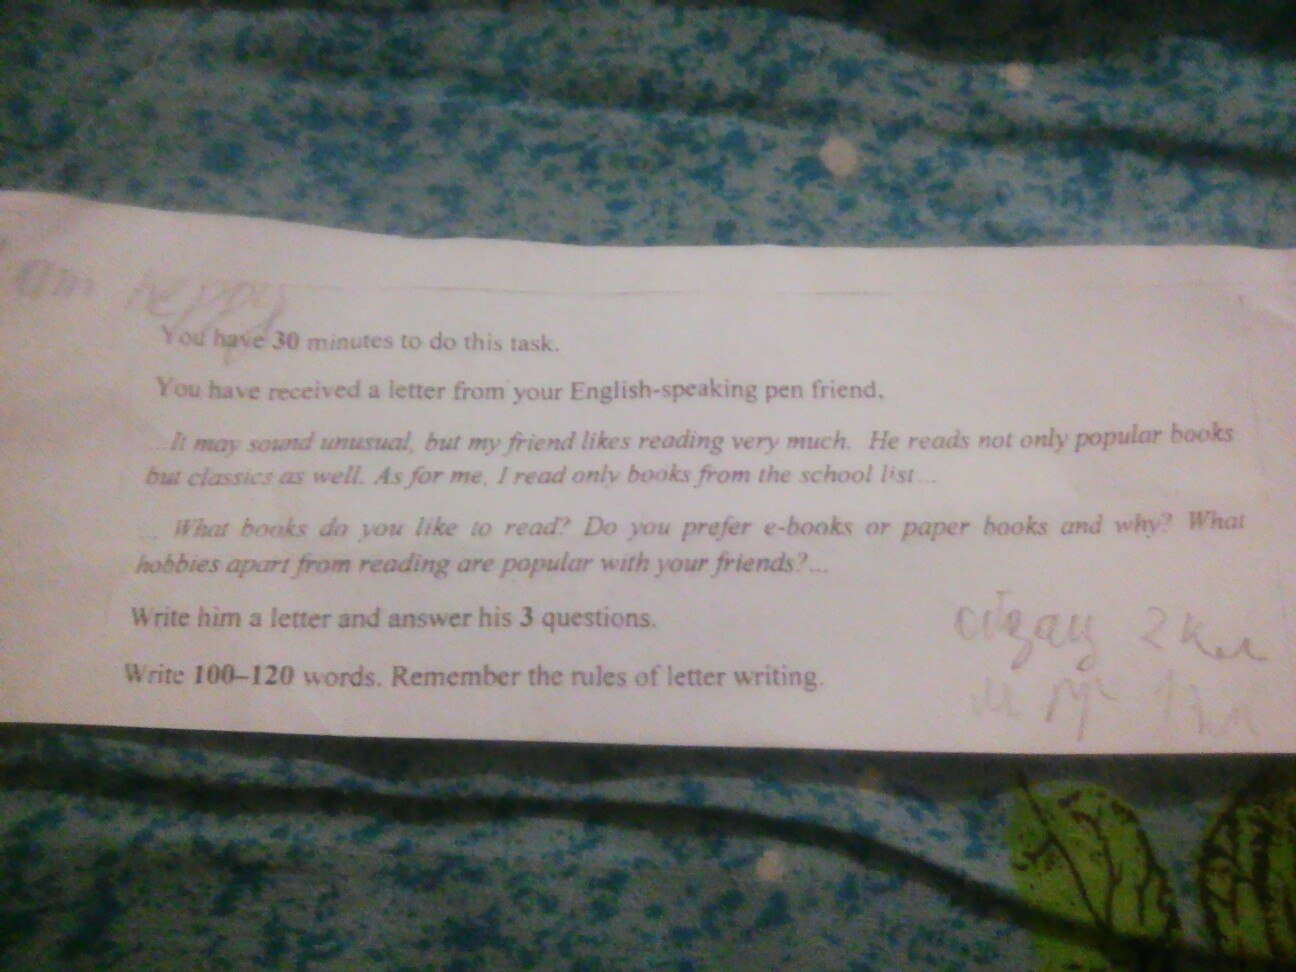 am heppy
You have 30 minutes to do this task.
You have received a letter from your English-speaking pen friend.
...It may sound unusual, but my friend likes reading very much. He reads not only popular books
but classics as well. As for me, I read only books from the school list...
... What books do you like to read? Do you prefer e-books or paper books and why? What
hobbies apart from reading are popular with your friends?...
Write him a letter and answer his 3 questions.
2 кл
Write 100–120 words. Remember the rules of letter writing.